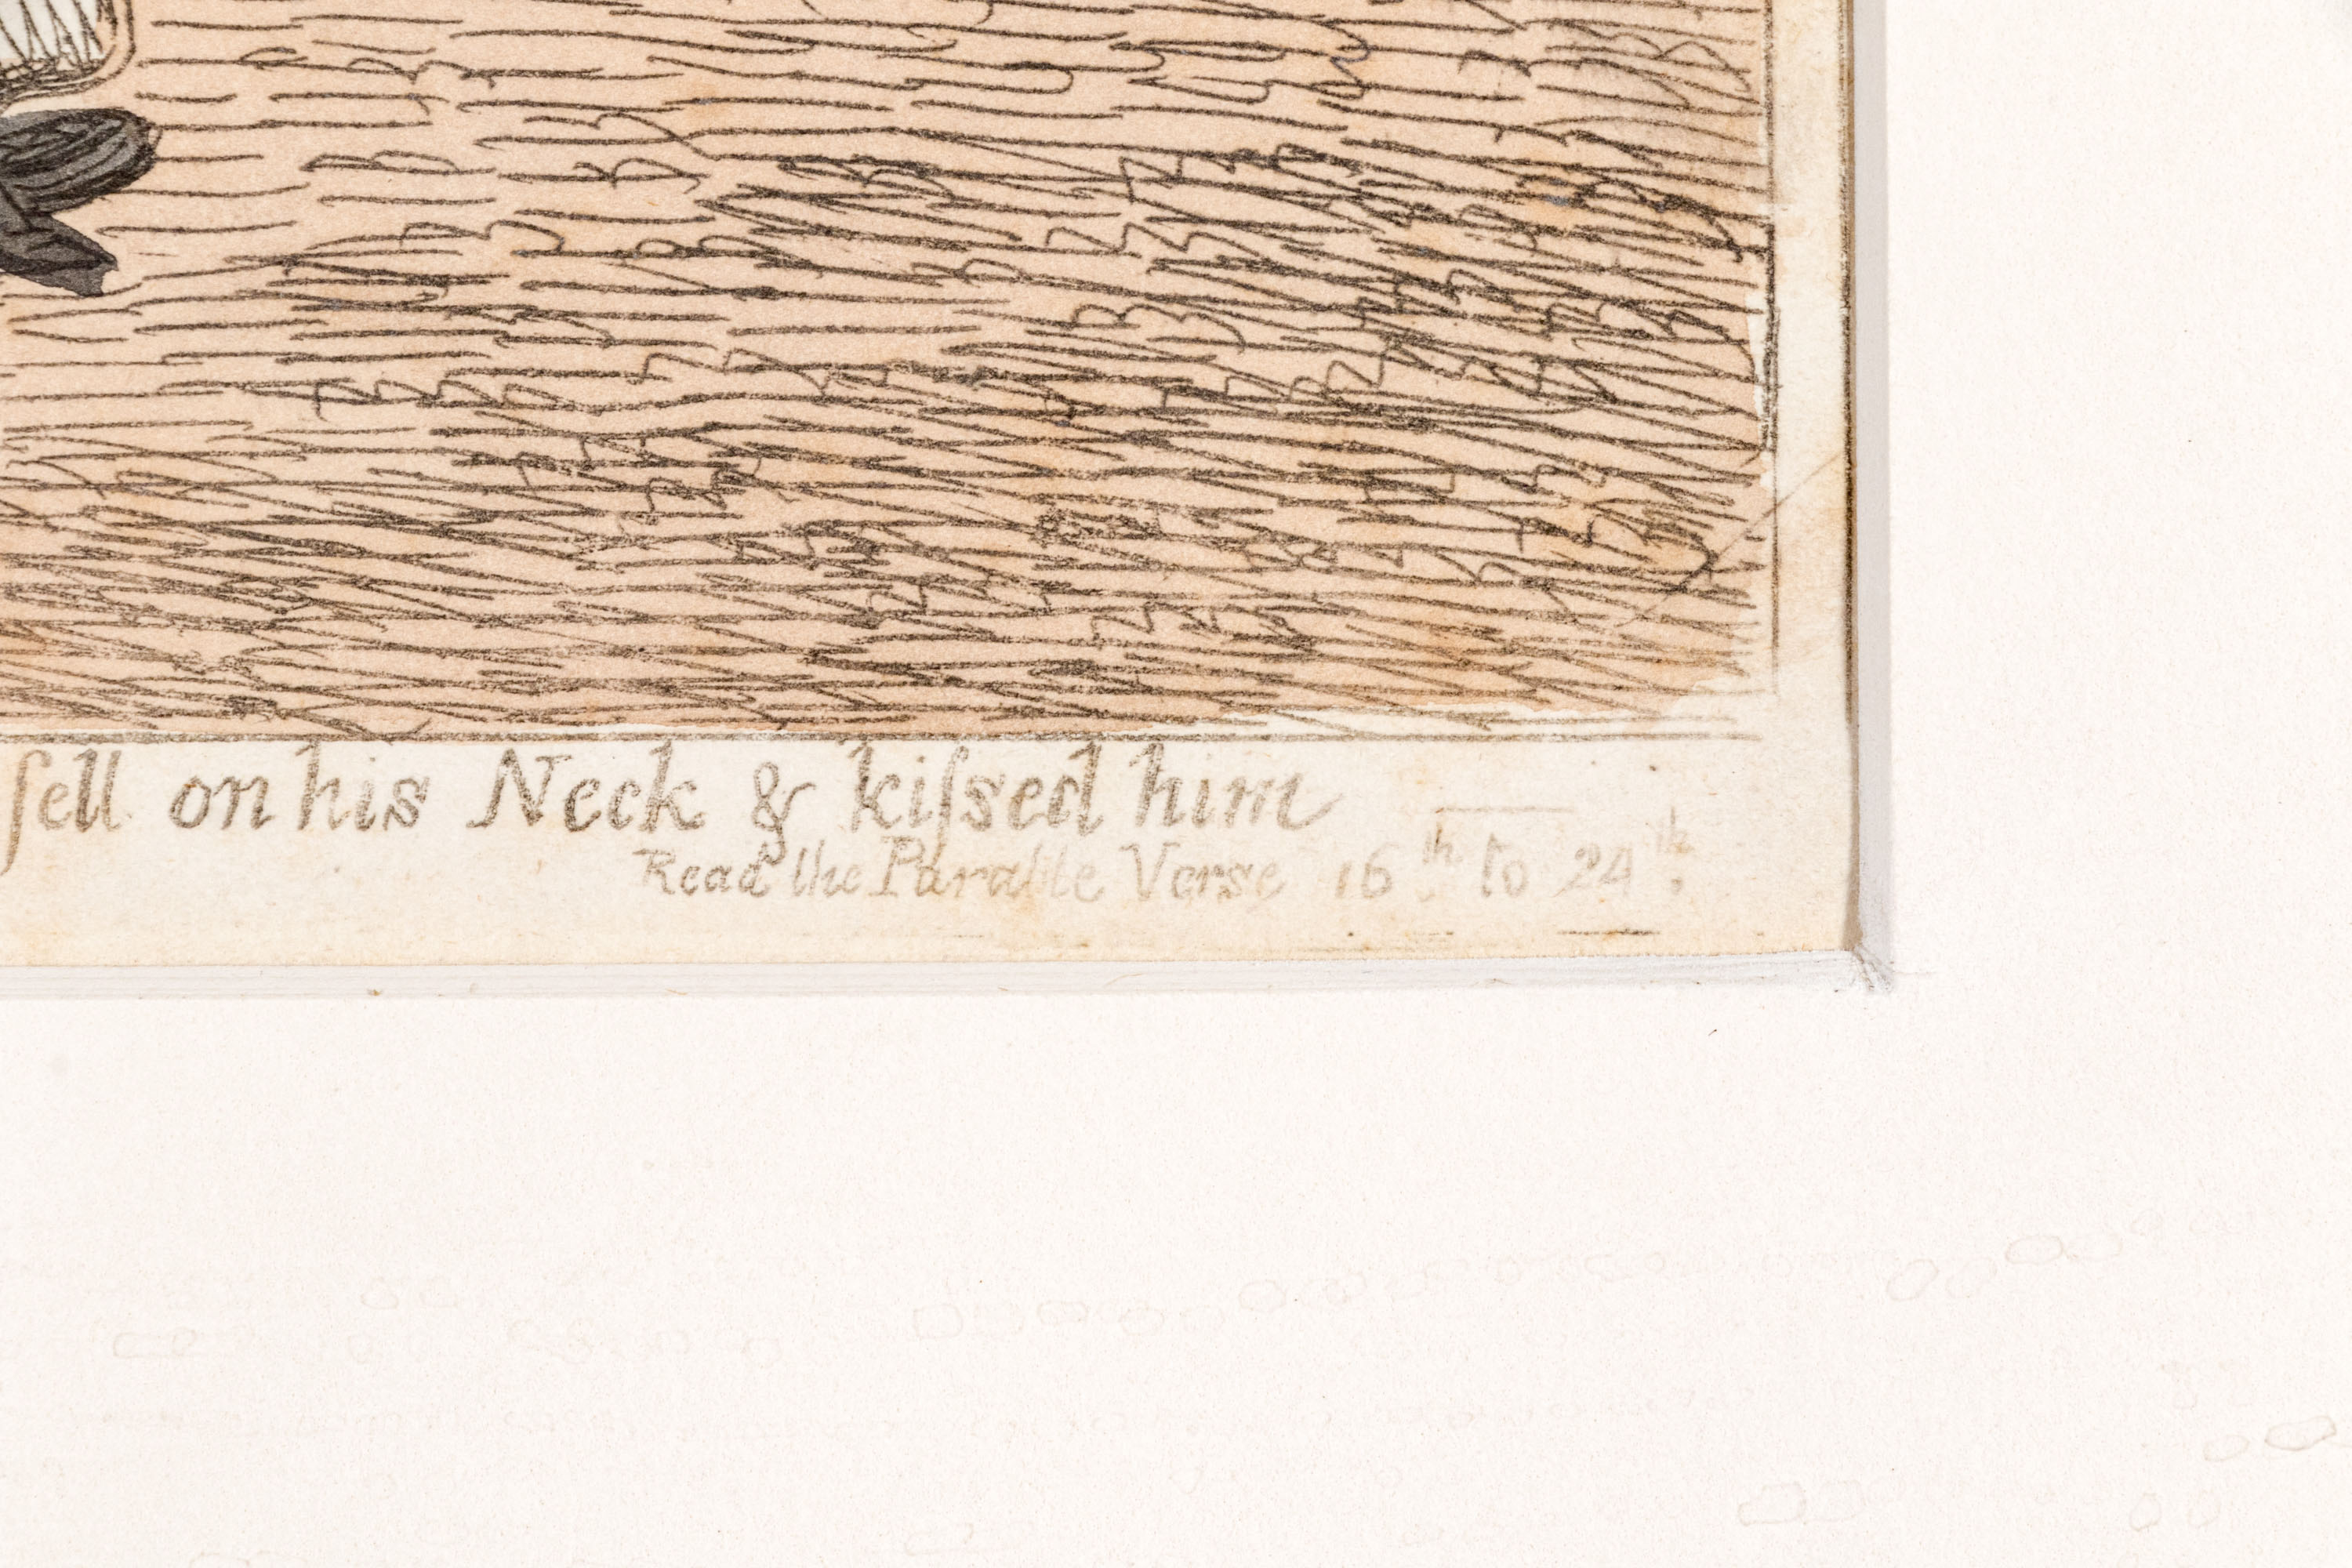 fell on his Neck & kiſsed him
Read the Parable Verse 16th to 24th.